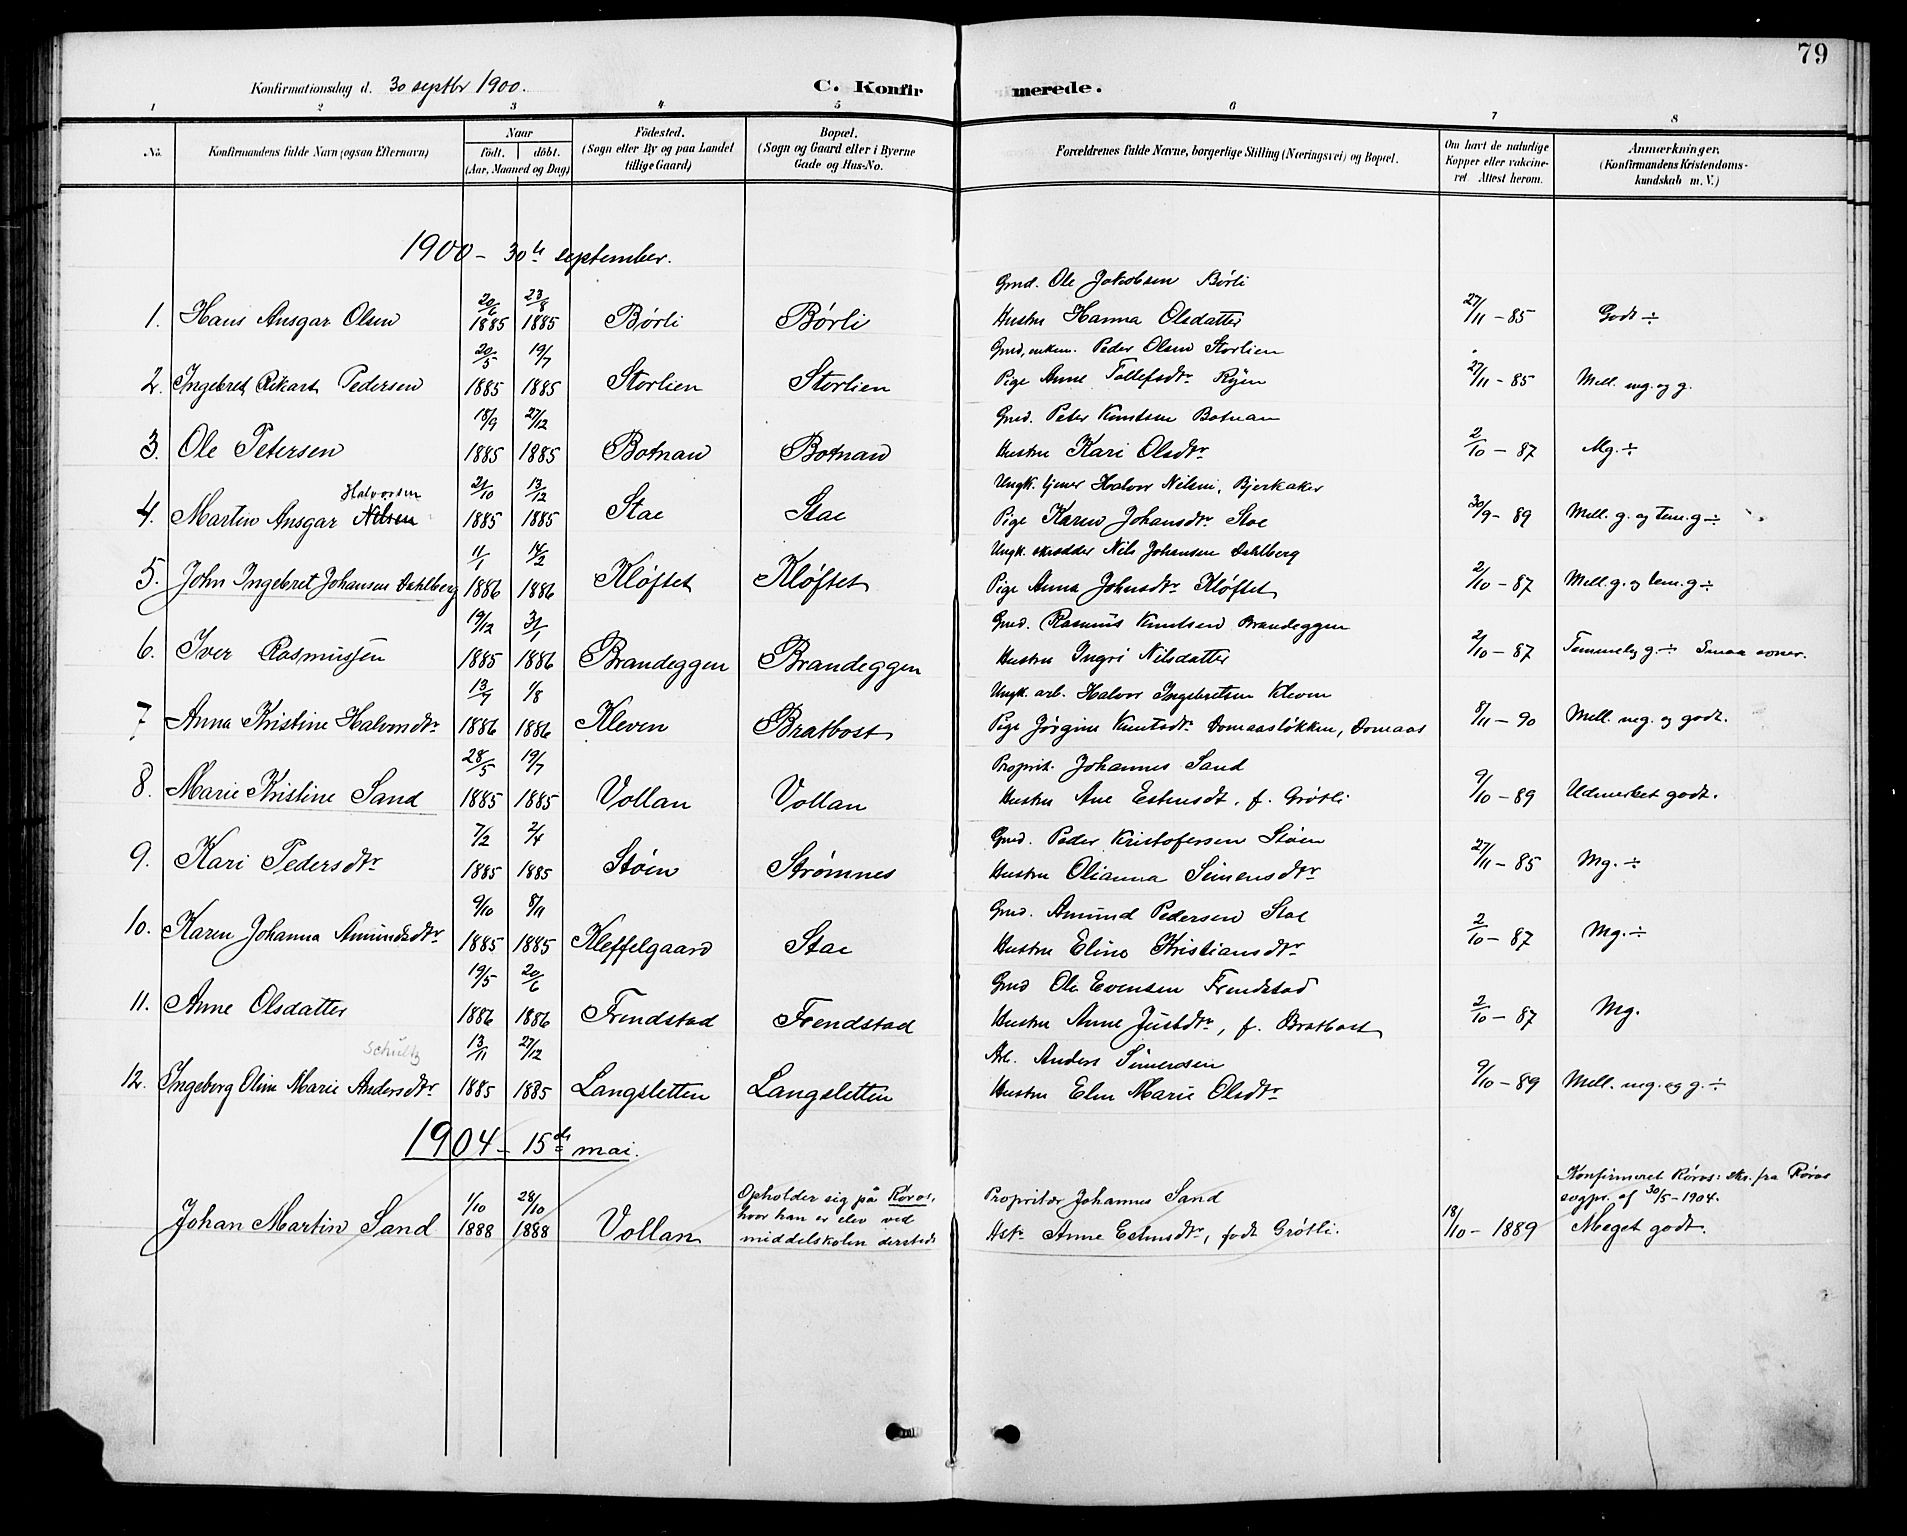 79
Konfirmationsdag d. 30 septbr 1900.
C. Konfir merede.
1 2 3 4 5 6 7 8
No. Konfirmandens fulde Navn (ogsaa Efternavn) Naar født. døbt. (Aar, Maaned og Dag) Fødested. (Sogn eller By og paa Landet tillige Gaard) Bopæl. (Sogn og Gaard eller i Byerne Gade og Hus-No. Forældrenes fulde Navne, borgerlige Stilling (Næringsvei) og Bopæl. Om havt de naturlige Kopper eller vakcineret Attest herom. Anmærkninger, (Konfirmandens Kristendomskundskab m. V.)
1900 - 30te september.
1. Hans Ansgar Olsen 20/6 1885 23/8 1885 Børli Børli Gmd. Ole Jakobsen Børli Hustru Hanna Olsdatter 27/11 - 85 Godt ÷
2. Ingebret Rikart Pedersen 20/5 1885 19/7 1885 Storlien Storlien Gmd, enkem. Peder Olsen Storlien Pige Anne Tollefsdtr Ryen 27/11 - 85 Mell. mg. og g.
3. Ole Petersen 18/9 1885 27/12 1885 Botnan Botnan Gmd. Peter Knutsen Botnan Hustru Kari Olsdtr 2/10 - 87 Mg. ÷
4. Martin Ansgar Nilsen Halvorsen 21/10 1885 13/12 1885 Stae Stae Ungk. tjener Halvor Nilsen, Bjerkaker Pige Karen Johansdtr Stae 30/9 - 89 Mell. g. og tem. g ÷
5. John Ingebret Johansen Dahlberg 11/1 1886 14/2 1886 Kløftet Kløftet Ungk. skrædder Nils Johansen Dahlberg Pige Anna Johnsdtr Kløftet 2/10 - 87 Mell. g. og tem. g ÷
6. Iver Rasmussen 19/12 1885 31/1 1886 Brandeggen Brandeggen Gmd. Rasmus Knutsen Brandeggen Hustru Ingri Nilsdatter 2/10 - 87 Temmelig g. ÷ Smaa evner.
7 Anna Kristine Halvorsdtr 13/7 1886 1/8 1886 Kleven Bratbost Ungk. arb. Halvor Ingebretsen Kleven Pige Jørgine Knutsdtr Domaasløkken, Domaas 8/11 - 90 Mell. mg. og godt.
8. Marie Kristine Sand 28/5 1885 19/7 1885 Vollan Vollan Proprit. Johannes Sand Hustru Ane Estensdt, f. Grøtli 9/10 - 89 Udmerket godt.
9. Kari Pedersdtr 7/2 1885 2/4 1885 Støen Strømnes Gmd. Peder Kristofersen Støen Hustru Olianna Simensdtr 27/11 - 85 Mg. ÷
10. Karen Johanna Amundsdtr 9/10 1885 8/11 1885 Kleffelgaard Stae Gmd. Amund Pedersen Stae Hustru Eline Kristiansdtr 2/10 - 87 Mg. ÷
11. Anne Olsdatter 19/5 1886 20/6 1886 Frendstad Frendstad Gmd Ole Evensen Frendstad Hustru Anne Justdtr, f. Bratbost 2/10 - 87 Mg.
Schultz
12. Ingeborg Oline Marie Andersdtr 13/11 1885 27/12 1885 Langsletten Langsletten Arb. Anders Simensen Hustru Elen Marie Olsdtr 9/10 - 89 Mell. mg. og g. ÷
1904 - 15de mai.
Johan Martin Sand 1/10 1888 28/10 1888 Vollan Opholder sig på Røros, hvor han er elev ved middelskolen dersteds Propritær Johannes Sand Hst. Anne Estensdtr, født Grøtli. 18/10 - 1889 Konfirmeret Røros: skr. fra Røros sogpr. af 30/5 - 1904. Meget godt.